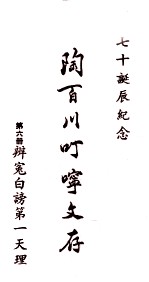 七十誕辰紀念
陶百川叮嚀文存
第六冊 辨冤白謗第一天理